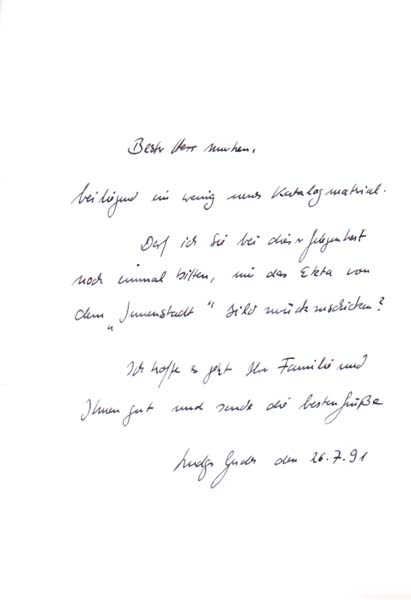 Bester Herr Murken,
beiliegend ein wenig neues Katalogmaterial.
Darf ich Sie bei dieser Gelegenheit
noch einmal bitten, mir das Ekta von
dem „Innenstadt“ Bild zurückzuschicken?
Ich hoffe es geht Ihrer Familie und
Ihnen gut und sende die besten Grüße
den 26.7.91